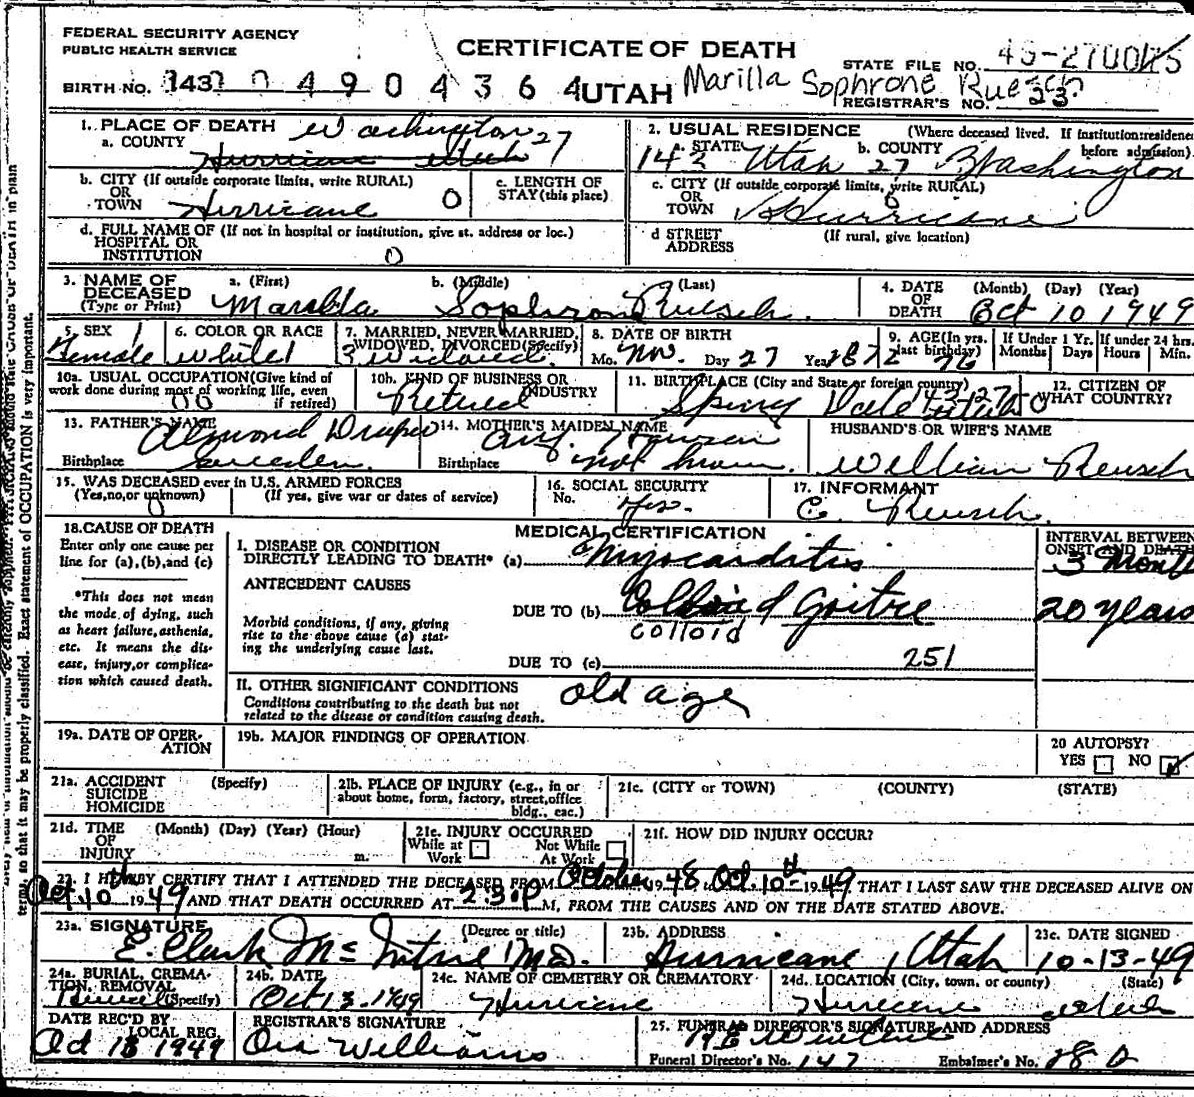 FEDERAL SECURITY AGENCY
PUBLIC HEALTH SERVICE
CERTIFICATE OF DEATH
STATE FILE NO.
BIRTH NO. 143 0490 4364 UTAH Marilla Sophrone Ruesch
REGISTRAR'S NO. 23
1. PLACE OF DEATH Washington 27
a. COUNTY Hurricane Utah
2. USUAL RESIDENCE (Where deceased lived. If institution: residence before admission)
a. STATE 143 Utah 27 b. COUNTY Washington
b. CITY (If outside corporate limits, write RURAL)
OR
TOWN Hurricane 0
c. LENGTH OF STAY (this place)
c. CITY (If outside corporate limits, write RURAL)
OR
TOWN Hurricane 0
d. FULL NAME OF (If not in hospital or institution, give st. address or loc.)
HOSPITAL OR
INSTITUTION 0
d STREET ADDRESS (If rural, give location)
3. NAME OF DECEASED (Type or Print)
a. (First) b. (Middle) (Last)
Sophron Ruesch
4. DATE OF DEATH (Month) (Day) (Year)
Oct 10 1949
5. SEX 1 Female
6. COLOR OR RACE White 1
7. MARRIED, NEVER MARRIED, WIDOWED, DIVORCED (Specify)
3 Widowed
8. DATE OF BIRTH
Mo. Nov. Day 27 Year 1872
9. AGE (In yrs. last birthday) 76
If Under 1 Yr. Months Days
If under 24 hrs. Hours Min.
10a. USUAL OCCUPATION (Give kind of work done during most of working life, even if retired) 00
10b. KIND OF BUSINESS OR INDUSTRY
Retired
11. BIRTHPLACE (City and State or foreign country)
Spring Dale Utah 143-27
12. CITIZEN OF WHAT COUNTRY? 0
13. FATHER'S NAME Almond Draper
Birthplace Sweden.
14. MOTHER'S MAIDEN NAME
Birthplace not known.
HUSBAND'S OR WIFE'S NAME
William Reusch
15. WAS DECEASED ever in U.S. ARMED FORCES
(Yes, no, or unknown) (If yes, give war or dates of service)
0
16. SOCIAL SECURITY No.
17. INFORMANT
C. Reusch.
18. CAUSE OF DEATH
Enter only one cause per line for (a), (b), and (c)
*This does not mean the mode of dying, such as heart failure, asthenia, etc. It means the disease, injury, or complication which caused death.
MEDICAL CERTIFICATION
INTERVAL BETWEEN ONSET AND DEATH
I. DISEASE OR CONDITION
DIRECTLY LEADING TO DEATH* (a) Myocarditis 3 Month
ANTECEDENT CAUSES
DUE TO (b) Colloid Goitre 20 years
colloid
Morbid conditions, if any, giving rise to the above cause (a) stating the underlying cause last.
DUE TO (c) 251
II. OTHER SIGNIFICANT CONDITIONS old age
Conditions contributing to the death but not related to the disease or condition causing death.
19a. DATE OF OPERATION
19b. MAJOR FINDINGS OF OPERATION
20 AUTOPSY?
YES NO
21a. ACCIDENT SUICIDE HOMICIDE (Specify)
21b. PLACE OF INJURY (e.g., in or about home, form, factory, street, office bldg., eac.)
21c. (CITY OR TOWN) (COUNTY) (STATE)
21d. TIME OF INJURY (Month) (Day) (Year) (Hour) m.
21e. INJURY OCCURRED
While at Work Not While At Work
21f. HOW DID INJURY OCCUR?
22. I HEREBY CERTIFY THAT I ATTENDED THE DECEASED FROM October 1948 to Oct. 10th 1949 THAT I LAST SAW THE DECEASED ALIVE ON
Oct. 10th 1949 AND THAT DEATH OCCURRED AT 2:30 P M, FROM THE CAUSES AND ON THE DATE STATED ABOVE.
23a. SIGNATURE (Degree or title)
E. Clark McIntire MD.
23b. ADDRESS
Hurricane, Utah
23c. DATE SIGNED
10-13-49
24a. BURIAL, CREMATION, REMOVAL (Specify)
24b. DATE
Oct 13-1949
24c. NAME OF CEMETERY OR CREMATORY
Hurricane
24d. LOCATION (City, town, or county) (State)
Hurricane Utah
DATE REC'D BY LOCAL REG.
Oct 13 1949
REGISTRAR'S SIGNATURE
Ora Williams
25. FUNERAL DIRECTOR'S SIGNATURE AND ADDRESS
Funeral Director's No. 147 Embalmer's No. 280
terms, so that it may be properly classified. Exact statement of OCCUPATION is very important.